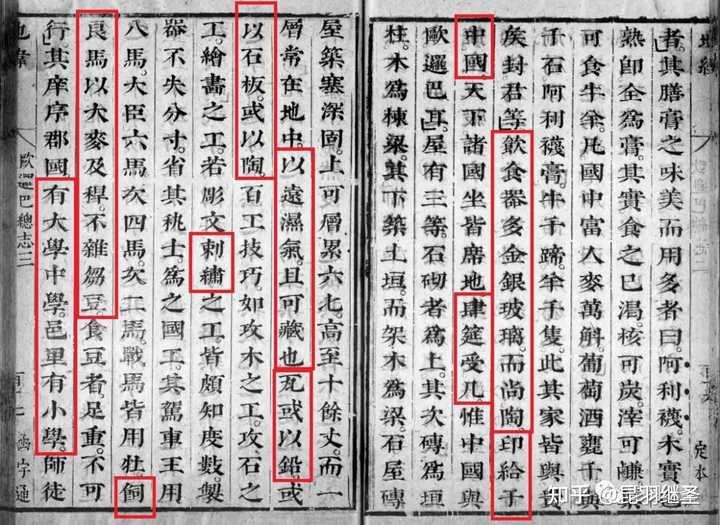 地緯
定本
者。其膳膏之味美而用多者曰。阿利襪。木實
熟卽全爲膏。其實食之已渴。核可炭。滓可
可食牛羊。凡國中富人麥萬斛。葡萄酒甕千與
千石阿利襪膏。牛千蹄。羊千隻。此其家皆與
矦封君等。飲食器多金銀玻璃。而尚陶。印給于
中國。天下諸國坐皆席地。肆筵受几。惟中國與
歐邏巴耳。屋有三等。石砌者爲上。其次磚爲垣
柱。木爲棟梁。其下築土垣。而架木爲梁。石屋磚
屋築塞深固。上可層累六七。高至十餘丈。而一
層常在地中。以遠濕氣。且可藏也。瓦或以鉛。或
以石板。或以陶。百工技巧如攻木之工。攻石之
工。繪畫之工。若彫文刺繡之工。皆頗知度數。製
器不失分寸。省其秇士。爲之國工。其駕車王用
八馬。大臣六馬。次四馬。次二馬。戰馬皆用牡。飼
良馬以大麥及稈。不雜芻豆。食豆者。足重。不可
行。其庠序郡國。有大學中學。邑里有小學。師徒
地緯
歐邏巴總志三
函宇通
知乎 @昆羽继圣